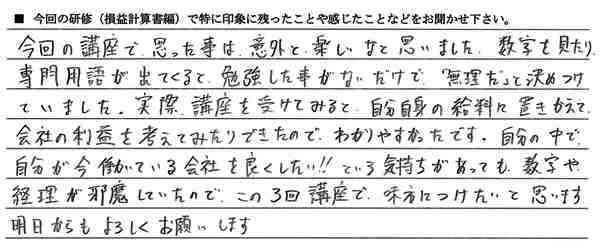 ■ 今回の研修（損益計算書編）で特に印象に残ったことや感じたことなどをお聞かせ下さい。
今回の講座で、思った事は、意外と、楽しいなと思いました。数字を見たり、
専門用語が出てくると、勉強した事がないだけで、「無理だ」っと決めつけ
ていました。実際、講座を受けてみると、自分自身の給料に置きかえて、
会社の利益を考えてみたりできたので、わかりやすかったです。自分の中で、
自分が今働いている会社を良くしたい!!という気持ちがあっても、数字や
経理が邪魔していたので、この3回講座で、味方につけたいと思います
明日からもよろしくお願いします